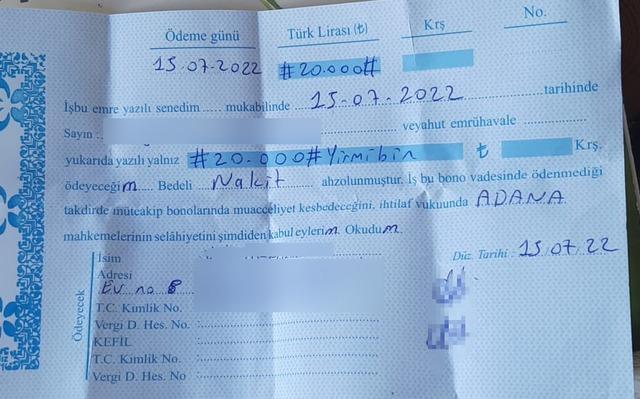 Ödeme günü Türk Lirası (₺) Krş No.
15.07.2022 #20.000#
İşbu emre yazılı senedim ..... mukabilinde 15-07-2022 tarihinde
Sayın : veyahut emrühavale
yukarıda yazılı yalnız #20.000# Yirmibin ₺ Krş.
ödeyeceğim.... Bedeli ..Nakit.. ahzolunmuştur. İş bu bono vadesinde ödenmediği
takdirde müteakip bonolarında muacceliyet kesbedeceğini, ihtilaf vukuunda ADANA
mahkemelerinin selâhiyetini şimdiden kabul eylerim. Okudum.
İsim Düz. Tarihi : 15.07.22
Adresi
Ev no 8
T.C. Kimlik No.
Vergi D. Hes. No. :
KEFİL
T.C. Kimlik No. :
Vergi D. Hes. No :
Ödeyecek